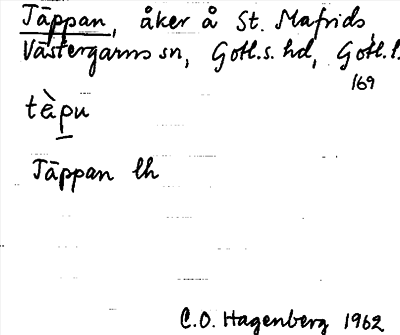 Täppan, åker å St. Mafrids
Västergarns sn, Gotl.s. hd, Gotl. l.
169
tèpu
Täppan lh
C.O. Hagenberg 1962